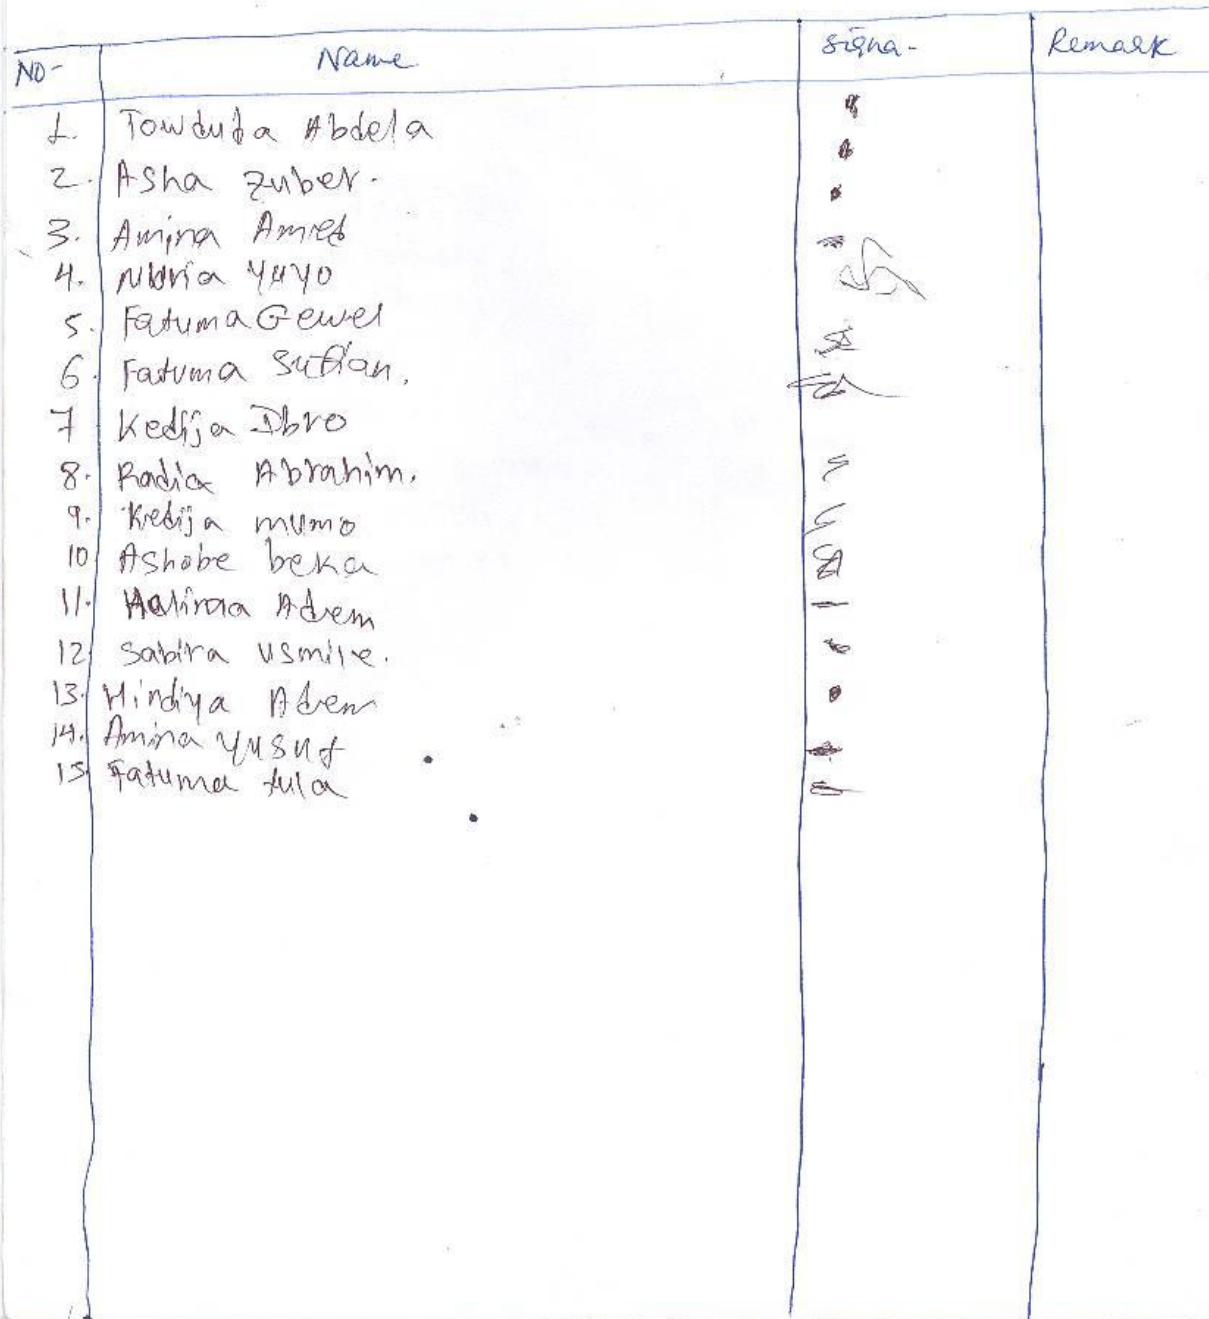 NO- Name Signa- Remark
1. Towduda Abdela
2. Asha Zuber.
3. Amina Amed
4. Nuria Yuyo
5. Fatuma Gewel
6. Fatuma Sufian.
7 Kedija Ibro
8. Radia Abrahim.
9. Kedija mumo
10 Ashobe beka
11. Halimaa Adem
12 Sabira Usmile.
13. Hindiya Adem
14. Amina Yusuf
15 Fatuma tula